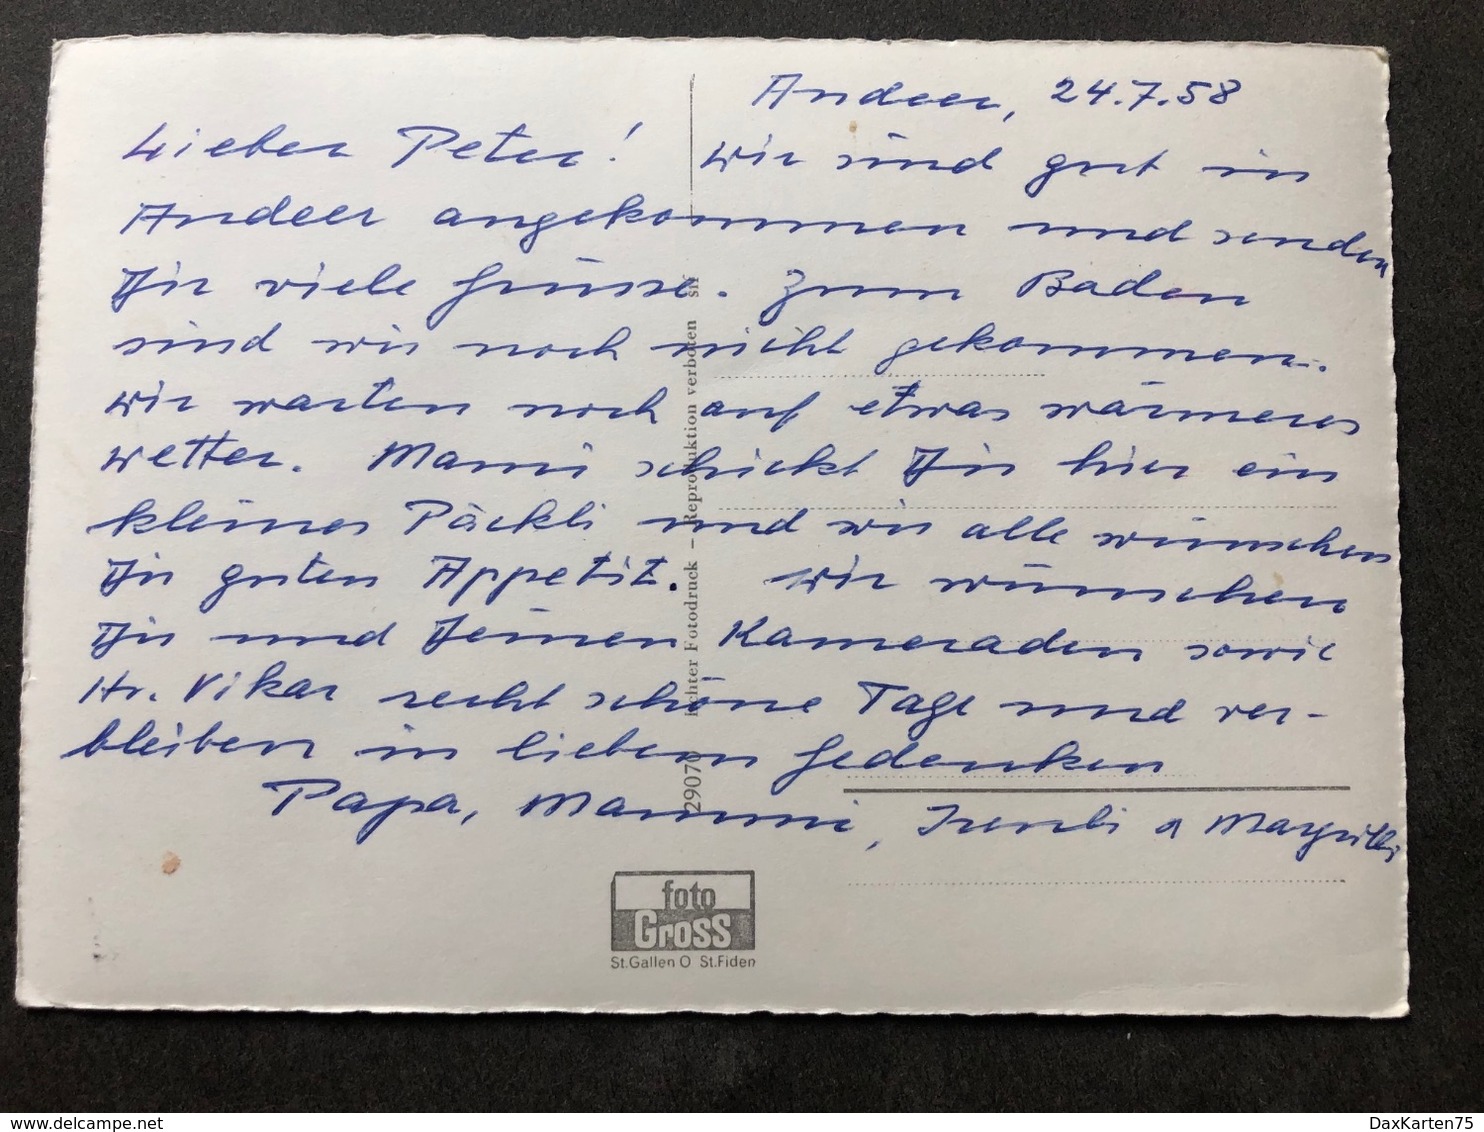 Andeer, 24.7.58
Lieber Peter! Wir sind gut in
Andeer angekommen und senden
Dir viele Grüsse. Zum Baden
sind wir noch nicht gekommen.
Wir warten noch auf etwas wärmeres
Wetter. Mami schickt Dir hier ein
kleines Päckli und wir alle wünschen
Dir guten Appetit. Wir wünschen
Dir und Deinen Kameraden sowie
Hr. Vikar recht schöne Tage und ver-
bleiben in liebem Gedenken
Papa, Mammi, Irenli
29070 Richter Fotodruck – Reproduktion verboten
foto
Gross
St.Gallen O St.Fiden
DaxKarten75